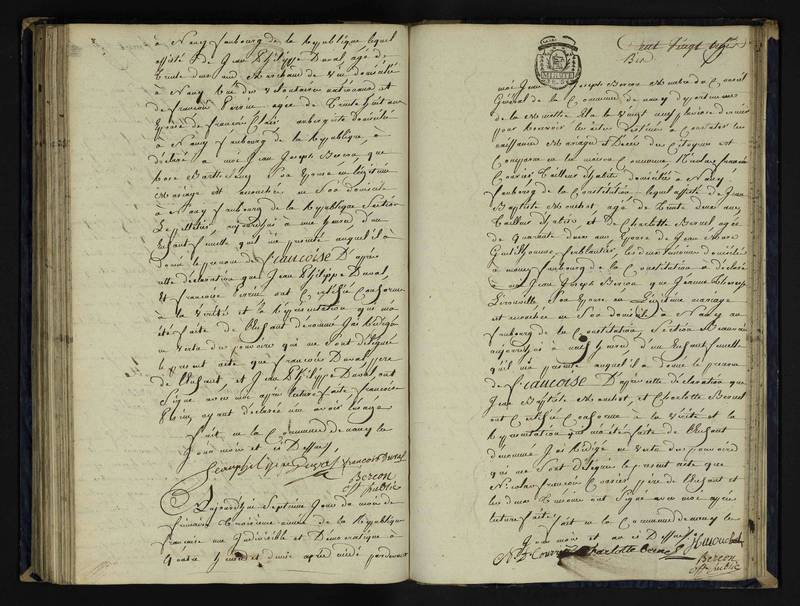 à Nancy faubourg de la République lequel
assisté de Jean Philippe Duval, âgé de
trente deux ans Marchand de vin domicilié
à Nancy rue des volontaires nationaux et
de françoise Perrin agée de trente huit ans
Epouse de françois aubergiste domiciliée
à Nancy faubourg de la République, à
déclaré à moi Jean Joseph Berson que
Rose Barthelemy Son épouse en légitime
Mariage est accouchée en son domicile
à Nancy faubourg de la République Section
aujourd'hui à une heure d'un
Enfant femelle qu'il me présenté auquel il à
donné le prenom de françoise D'après
cette déclaration que Jean Philippe Duval,
Et françoise Perrin ont Certifié Conforme
à la vérité et la Représentation qui m'a
été faite de l'Enfant dénommé J'ai Rédigé
en vertu des pouvoirs qui me sont délégués
le présent acte que françois Duval père
de l'Enfant, et Jean Philippe Duval, ont
Signé avec moi après lecture faite françoise
Perrin, ayant déclarée n'en avoir l'usage
fait en la Commune de nancy les
Jour mois et an Dessus
Jean philippe Duval françois Duval
Berson
off public
Aujourd'hui Septieme Jour du mois de
frimaire troisieme année de la République
française une Indivisible et Démocratique à
quatre heures après midi pardevant
Cent Vingt
moi Jean Joseph Berson Membre du Conseil
Général de la Commune de nancy département
de la Meurthe Elu le Vingt neuf pluviose dernier
pour Recevoir les actes Destinés à Constater les
naissances Mariages et Décès des Citoyens est
Comparu en la maison Commune Nicolas françois
tailleur d'habits domicilié à Nancy
faubourg de la Constitution lequel assisté de Jean
Baptiste Mouchet, agé de trente deux ans,
tailleur d'habits et De Charlotte Bernel agée
de quarante deux ans Epouse de Jean
ferblantier, les deux témoins domiciliés
à nancy faubourg de la Constitution à déclaré
à moi Jean Joseph Berson que Jeanne
Son épouse en Légitime mariage
est accouchée en Son domicile à Nancy au
faubourg de la Constitution, Section Beauvau
aujourd'hui à heures d'un Enfant femelle
qu'il me présenté auquel il a donné le prenom
de françoise D'après cette déclaration que
Jean Baptiste Mouchet, et Charlotte Bernel
ont Certifié Conforme à la Vérité et la
Représentation qui m'a été faite de l'Enfant
dénommé J'ai Rédigé en vertu des pouvoirs
qui me sont délégués le présent acte que
Nicolas françois père de l'Enfant et
les deux témoins ont Signé avec moi après
lecture faite
fait en la Commune de nancy les
Jour mois et an ci Dessus
Charlotte Bernel
Berson
off public